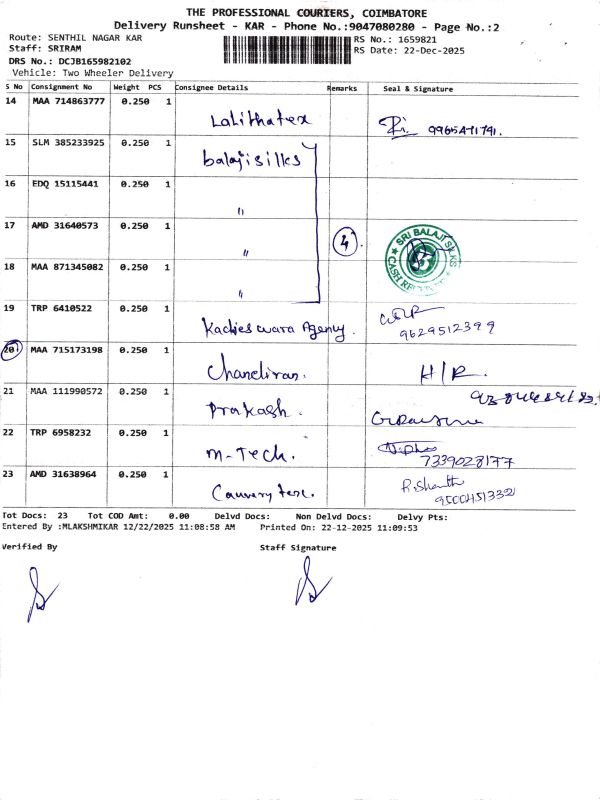 THE PROFESSIONAL COURIERS, COIMBATORE
Delivery Runsheet - KAR - Phone No.:9047080280 - Page No.:2
Route: SENTHIL NAGAR KAR RS No.: 1659821
Staff: SRIRAM RS Date: 22-Dec-2025
DRS No.: DCJB165982102
Vehicle: Two Wheeler Delivery
S No Consignment No Weight PCS Consignee Details Remarks Seal & Signature
14 MAA 714863777 0.250 1 Lalithatex 9965471791.
15 SLM 385233925 0.250 1 balajisilks
16 EDQ 15115441 0.250 1 "
17 AMD 31640573 0.250 1 " 4 SRI BALAJI SILKS
18 MAA 871345082 0.250 1 "
19 TRP 6410522 0.250 1 Agency. 9629512399
20 MAA 715173198 0.250 1 Chandiran. H/R.
21 MAA 111990572 0.250 1 Prakash.
22 TRP 6958232 0.250 1 M-Tech. 7339028177
23 AMD 31638964 0.250 1 Cauvery tex. 9500451332
Tot Docs: 23 Tot COD Amt: 0.00 Delvd Docs: Non Delvd Docs: Delvy Pts:
Entered By :MLAKSHMIKAR 12/22/2025 11:08:58 AM Printed On: 22-12-2025 11:09:53
Verified By Staff Signature